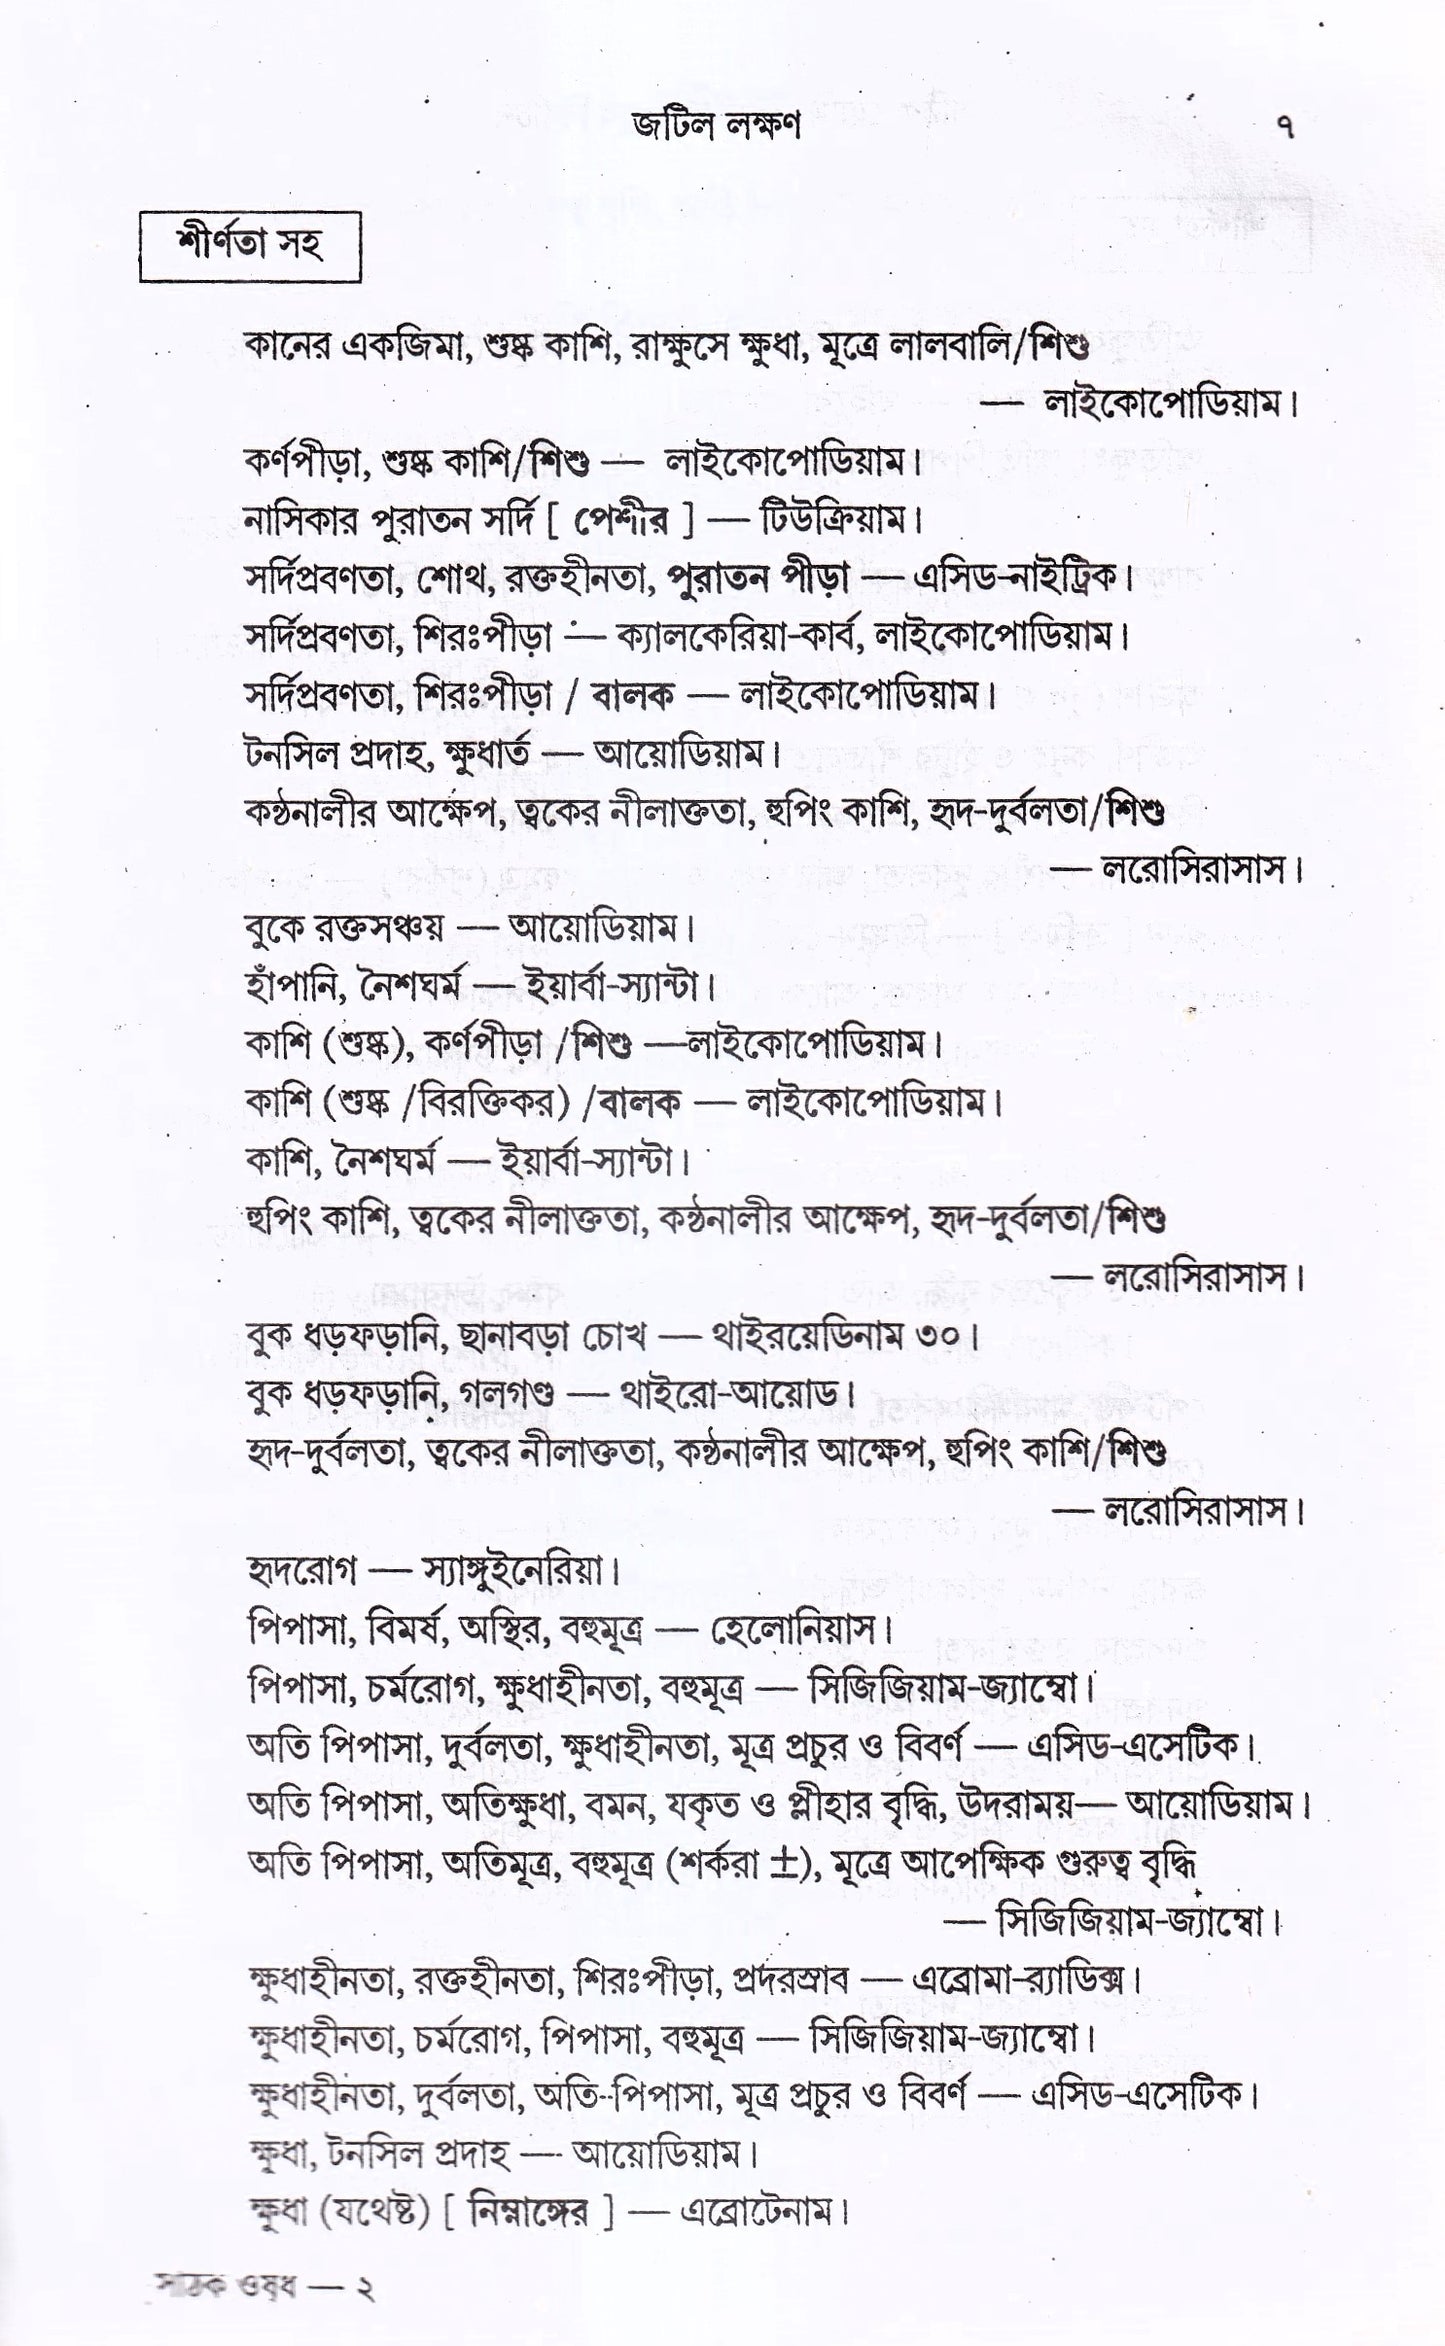 জটিল লক্ষণ ৭
শীর্ণতা সহ
কানের একজিমা, শুষ্ক কাশি, রাক্ষুসে ক্ষুধা, মূত্রে লালবালি/শিশু
— লাইকোপোডিয়াম।
কর্ণপীড়া, শুষ্ক কাশি/শিশু — লাইকোপোডিয়াম।
নাসিকার পুরাতন সর্দি [ পেশীর ] — টিউক্রিয়াম।
সর্দিপ্রবণতা, শোথ, রক্তহীনতা, পুরাতন পীড়া — এসিড-নাইট্রিক।
সর্দিপ্রবণতা, শিরঃপীড়া — ক্যালকেরিয়া-কার্ব, লাইকোপোডিয়াম।
সর্দিপ্রবণতা, শিরঃপীড়া / বালক — লাইকোপোডিয়াম।
টনসিল প্রদাহ, ক্ষুধার্ত — আয়োডিয়াম।
কন্ঠনালীর আক্ষেপ, ত্বকের নীলাক্ততা, হুপিং কাশি, হৃদ-দুর্বলতা/শিশু
— লরোসিরাসাস।
বুকে রক্তসঞ্চয় — আয়োডিয়াম।
হাঁপানি, নৈশঘর্ম — ইয়ার্বা-স্যান্টা।
কাশি (শুষ্ক), কর্ণপীড়া /শিশু —লাইকোপোডিয়াম।
কাশি (শুষ্ক /বিরক্তিকর) /বালক — লাইকোপোডিয়াম।
কাশি, নৈশঘর্ম — ইয়ার্বা-স্যান্টা।
হুপিং কাশি, ত্বকের নীলাক্ততা, কন্ঠনালীর আক্ষেপ, হৃদ-দুর্বলতা/শিশু
— লরোসিরাসাস।
বুক ধড়ফড়ানি, ছানাবড়া চোখ — থাইরয়েডিনাম ৩০।
বুক ধড়ফড়ানি, গলগণ্ড — থাইরো-আয়োড।
হৃদ-দুর্বলতা, ত্বকের নীলাক্ততা, কন্ঠনালীর আক্ষেপ, হুপিং কাশি/শিশু
— লরোসিরাসাস।
হৃদরোগ — স্যাঙ্গুইনেরিয়া।
পিপাসা, বিমর্ষ, অস্থির, বহুমূত্র — হেলোনিয়াস।
পিপাসা, চর্মরোগ, ক্ষুধাহীনতা, বহুমূত্র — সিজিজিয়াম-জ্যাম্বো।
অতি পিপাসা, দুর্বলতা, ক্ষুধাহীনতা, মূত্র প্রচুর ও বিবর্ণ — এসিড-এসেটিক।
অতি পিপাসা, অতিক্ষুধা, বমন, যকৃত ও প্লীহার বৃদ্ধি, উদরাময়— আয়োডিয়াম।
অতি পিপাসা, অতিমূত্র, বহুমূত্র (শর্করা ±), মূত্রে আপেক্ষিক গুরুত্ব বৃদ্ধি
— সিজিজিয়াম-জ্যাম্বো।
ক্ষুধাহীনতা, রক্তহীনতা, শিরঃপীড়া, প্রদরস্রাব — এব্রোমা-র‍্যাডিক্স।
ক্ষুধাহীনতা, চর্মরোগ, পিপাসা, বহুমূত্র — সিজিজিয়াম-জ্যাম্বো।
ক্ষুধাহীনতা, দুর্বলতা, অতি-পিপাসা, মূত্র প্রচুর ও বিবর্ণ — এসিড-এসেটিক।
ক্ষুধা, টনসিল প্রদাহ — আয়োডিয়াম।
ক্ষুধা (যথেষ্ট) [ নিম্নাঙ্গের ] — এব্রোটেনাম।
সঠিক ঔষধ — ২